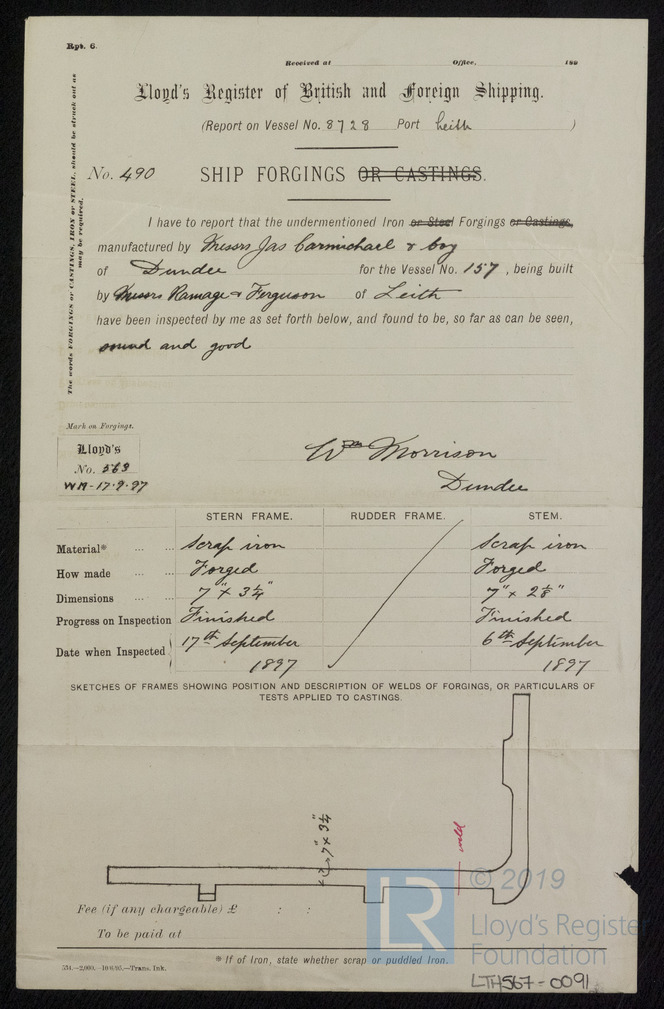 Rpt. 6.
Received at Office, 189
Lloyd's Register of British and Foreign Shipping.
(Report on Vessel No. 8728 Port Leith )
No. 490 SHIP FORGINGS OR CASTINGS.
The words FORGINGS or CASTINGS, IRON or STEEL, should be struck out as may be required.
I have to report that the undermentioned Iron or Steel Forgings or Castings,
manufactured by Messrs Jas Carmichael & Coy
of Dundee for the Vessel No. 157, being built
by Messrs Ramage & Ferguson of Leith
have been inspected by me as set forth below, and found to be, so far as can be seen,
sound and good
Mark on Forgings.
Lloyd's
No. 563
WM-17-9-97
Wm Morrison
Dundee
STERN FRAME. RUDDER FRAME. STEM.
Material* ... ... Scrap iron Scrap iron
How made ... ... Forged Forged
Dimensions ... ... 7" x 3¼" 7" x 2⅛"
Progress on Inspection Finished Finished
Date when Inspected 17th September 1897 6th September 1897
SKETCHES OF FRAMES SHOWING POSITION AND DESCRIPTION OF WELDS OF FORGINGS, OR PARTICULARS OF
TESTS APPLIED TO CASTINGS.
7" x 3¼"
weld
Fee (if any chargeable) £ : :
To be paid at
* If of Iron, state whether scrap or puddled Iron.
534.—2,000.—10/6/95.—Trans. Ink.
LR
© 2019
Lloyd's Register
Foundation
LTH567-0091